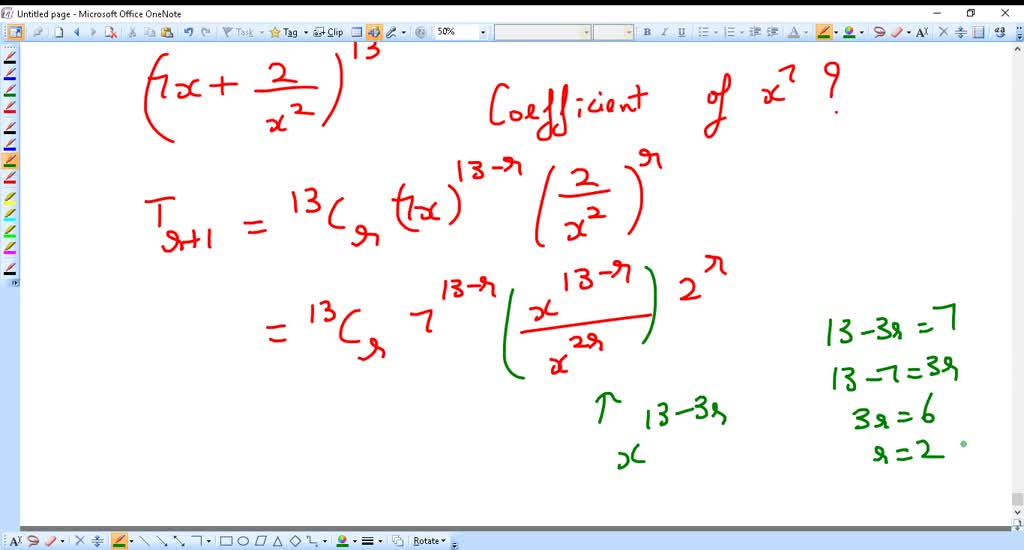 Untitled page - Microsoft Office OneNote
Task Tag Clip 50% B I U
(7x + 2/x²)¹³
Coefficient of x⁷ ?
T_{r+1} = ¹³C_r (7x)^{13-r} (2/x²)^r
= ¹³C_r 7^{13-r} (x^{13-r}/x^{2r}) 2^r
↑ x^{13-3r}
13-3r = 7
13-7 = 3r
3r = 6
r = 2
Rotate